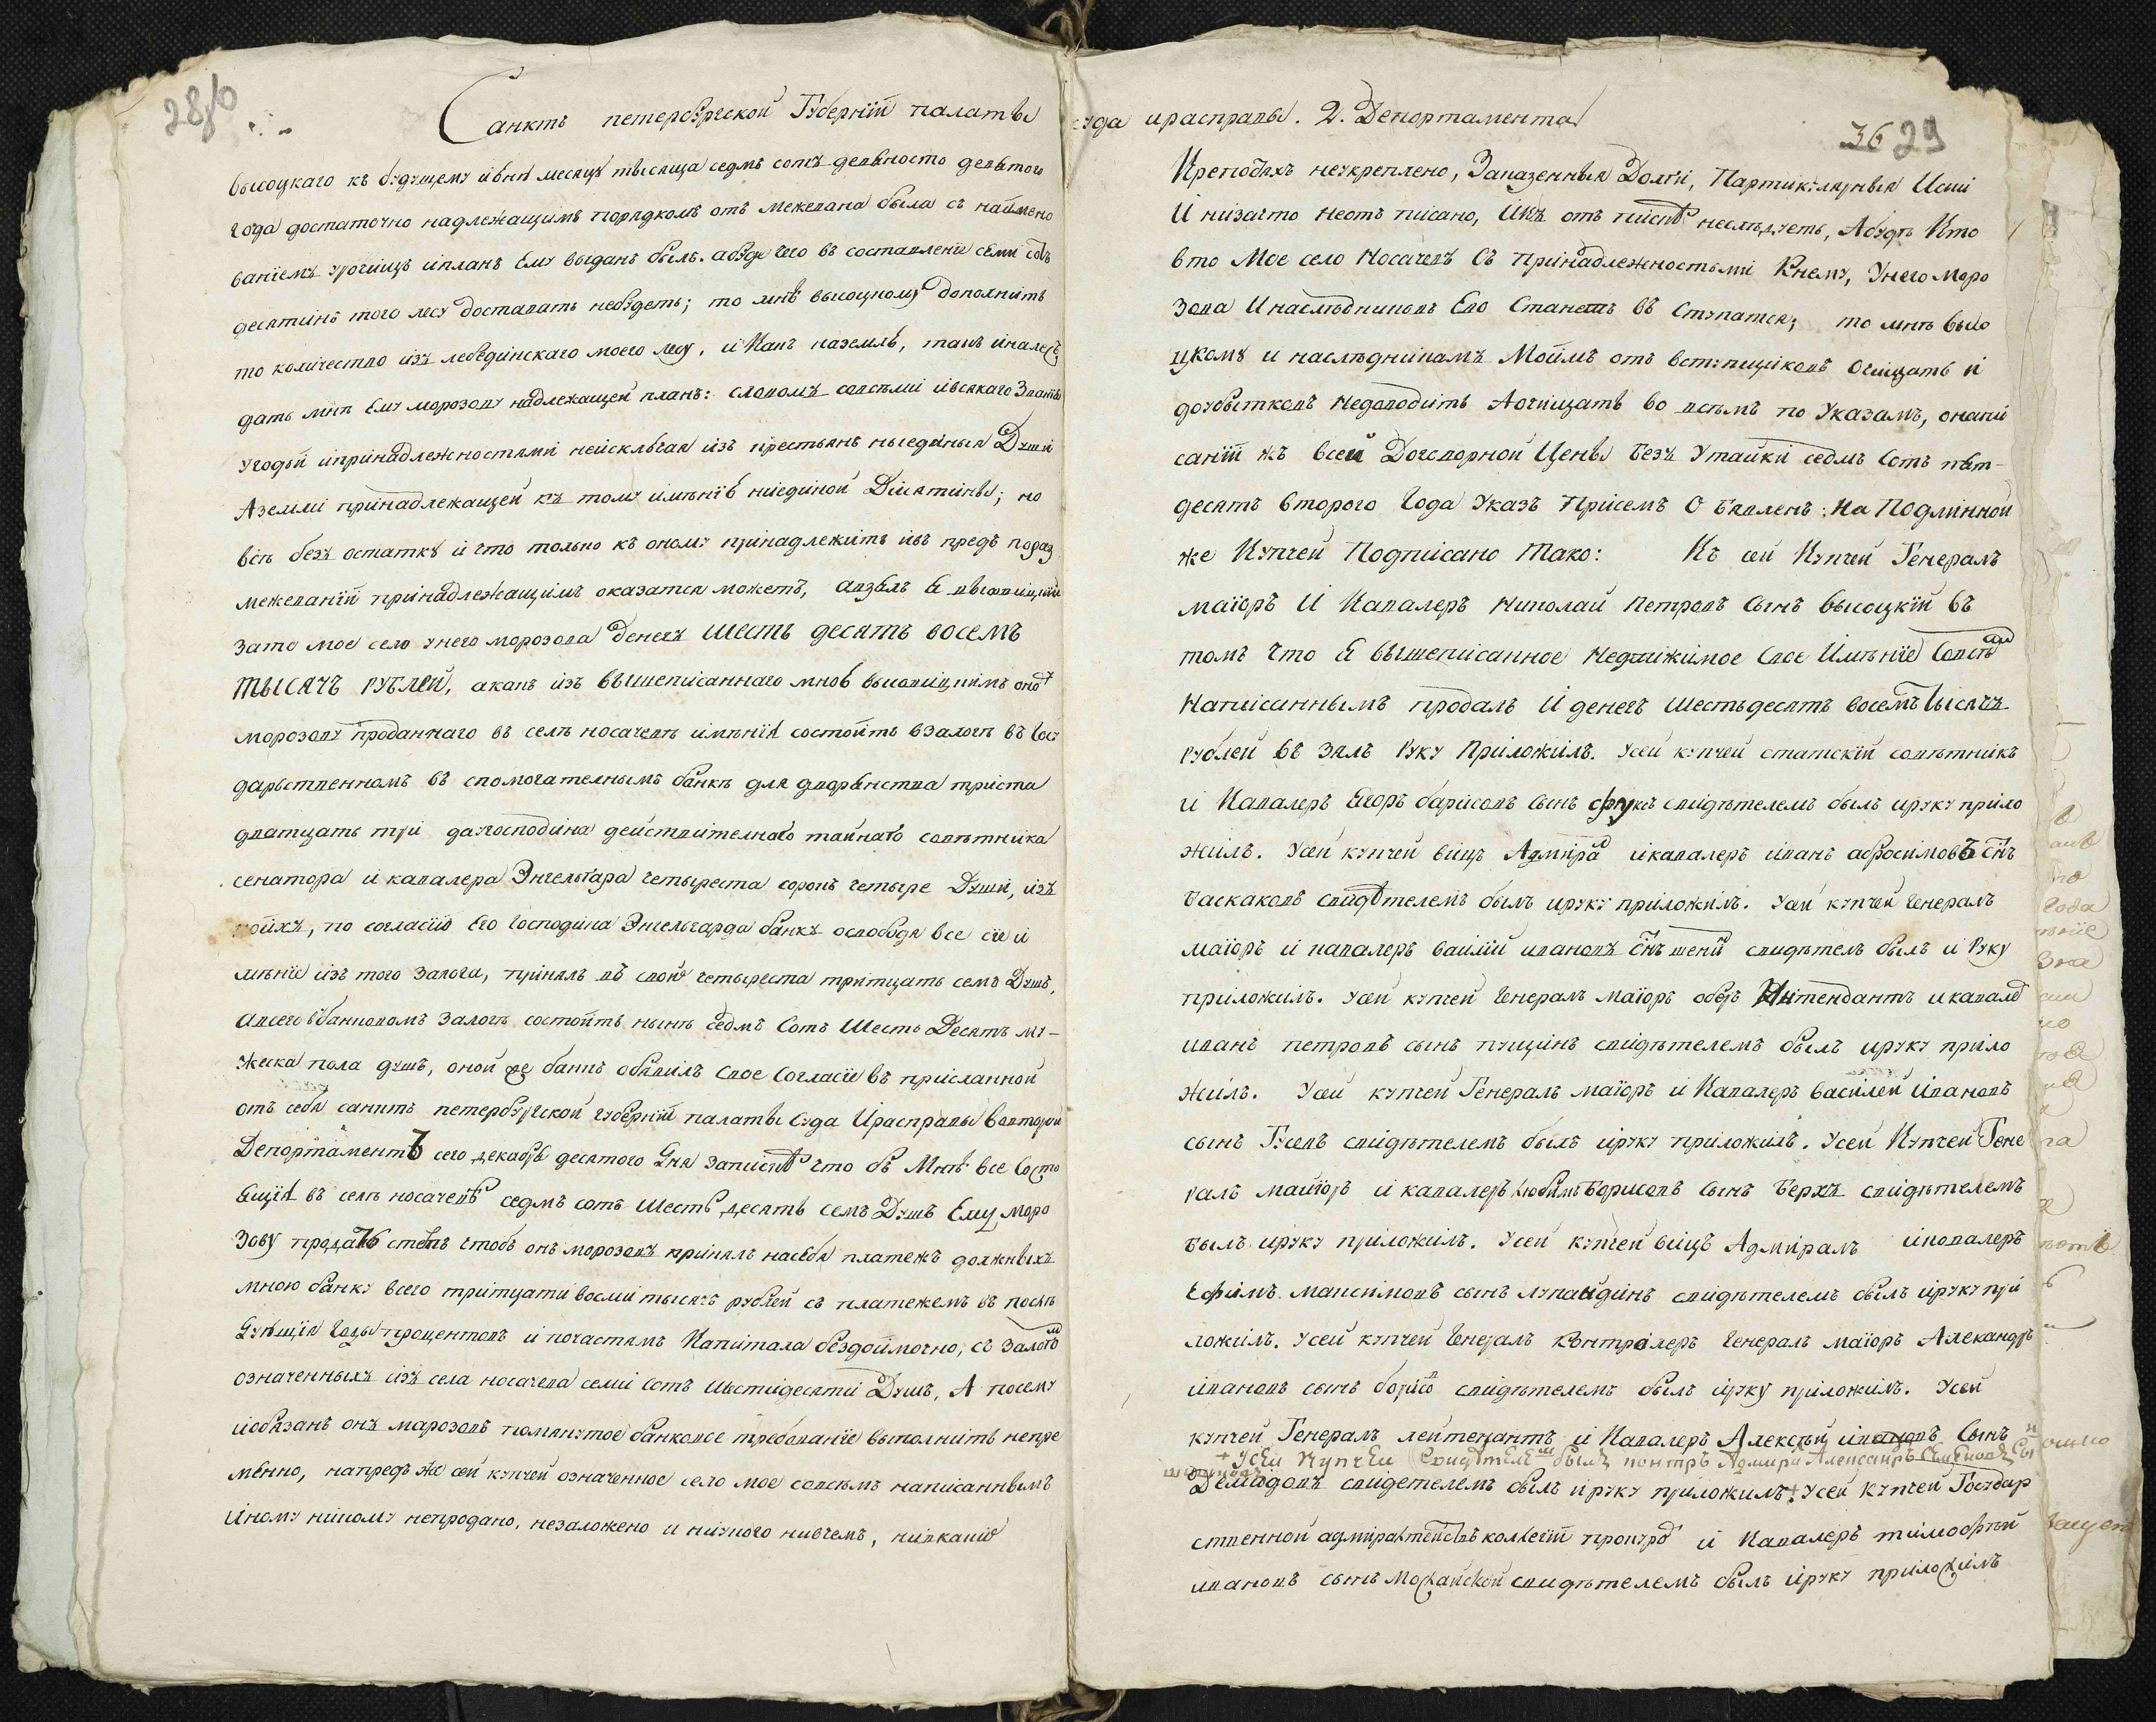 28об
Санктъ петербургской Губерніи палаты
высоцкаго къ будущему июня месяцу тысяща седмь сотъ девяносто девятого
года достаточно надлежащимъ порядкомъ отъ межевана была съ наимено
ваніемъ урочищъ и планъ Ему выданъ былъ. а буде чего въ составленіе семи сотъ
десятинъ того лесу доставать небудетъ; то мнѣ высоцкому дополнить
то количество изъ лебединскаго моего лесу, и Какъ наземлю, такъ иналесъ
дать мнѣ Ему морозову надлежащей планъ: словомъ совсѣми ивсякаго Званія
угодьи ипринадлежностями неисключая изъ крестьянъ ныединыя Души
Аземли принадлежащей къ тому имѣнію ниединой Десятины; но
всѣ безъ остатку и что только къ оному принадлежитъ ивъ предь пораз
межеваніи принадлежащимъ оказатся можетъ, авзялъ я высоцкій
зато мое село унего морозова денегъ шесть десятъ восемъ
тысячъ рублей, акакъ изъ вышеписаннаго мною высоцкимъ оно+
морозову проданнаго въ селѣ носачевѣ имѣнія состоитъ взалогѣ въ Госу
дарственномъ въ спомогателнымъ банкѣ для дворянства триста
дватцать три да угосподина действителного тайнаго совѣтника
сенатора и кавалера Энгельгара четыреста сорокъ четыре Души, изъ
коихъ, по согласію Его Господина Энгельгарда банкъ освободя все сіе и
мѣніе изъ того залога, принялъ въ свой четыреста тритцать семь Душъ,
Авсего вбанковомъ залогѣ состоитъ нынѣ седмь Сотъ Шесть Десятъ му-
жеска пола душъ, оной же банкъ обявилъ свое Согласіе въ присланной
отъ себя санктъ петербургской губерніи палаты Суда Ирасправы вовторой
Депортаментъ сего декабря десятого Дня запискѣ что бъ Мнѣ все Состо
ящія въ селѣ носачевѣ седмь сотъ Шесть десятъ семь Душъ Ему моро
зову продать стемъ чтобъ онъ морозовъ принялъ насебя платежъ должныхъ
мною банку всего тритцати восми тысячъ рублей съ платежемъ въ послѣ
Дующія Годы процентовъ и почастямъ Капитала бездоимочно, съ Залогом
означенныхъ изъ села носачева семи Сотъ шестидесяти Душъ, А посему
иобязанъ онъ марозовъ помянутое банковое требованіе выполнить непре
мѣнно, напредь же сей купчей означенное село мое совсѣмъ написаннымъ
Иному никому непродано, незаложено и ниукого нивчемъ, нивкаких
суда ирасправы. 2. Депортамента
36 29
Крепостяхъ неукреплено, Заказенныя Долги, Партикулярныя Иски
И низачто неотъ писано, и въ отъ писк неслѣдуетъ, Абудѣ Кто
вто Мое село Носачевъ Съ принадлежностьми Кнему, Унего моро
зова Инаслѣдниковъ Его Станетъ въ Ступатся; то мнѣ высо
цкому и наслѣдникамъ Моимъ отъ вступщиковъ Очищать и
доубытковъ Недоводить Аочищать во всемъ по Указамъ, онапи
саніи жъ всей Договорной Цены Безъ Утайки седмь Сотъ пят-
десятъ второго Года Указъ Присемъ О бявленъ: На Подлинной
же Купчей Подписано Тако: Къ сей Купчей Генералъ
маіоръ И Кавалеръ Николай Петровъ Сынъ Высоцкій въ
томъ что Я вышеписанное Недвижимое Свое Имѣніе Совсѣм
Написаннымъ продалъ И денегъ шестьдесятъ восемъ тысячъ
рублей въ зялъ Руку Приложилъ. Усей купчей статскій совѣтникъ
и Кавалеръ Егоръ барисовъ Сынъ фуксъ свидѣтелемъ былъ ируку прило
жилъ. Усей купчей вицъ Адмирал икавалеръ иванъ абросимовъ Снъ
Баскаковъ свидѣтелемъ былъ ируку приложилъ. Усей купчей Генералъ
маіоръ и кавалеръ василій ивановъ Снъ шеній свидѣтель былъ и Руку
приложилъ. Усей купчей Генералъ маіоръ оберъ Интендантъ икавалер
иванъ петровъ сынъ пущинъ свидѣтелемъ былъ ируку прило
жилъ. Усей купчей Генералъ маіоръ и Кавалеръ василей ивановъ
сынъ Гусевъ свидѣтелемъ былъ ируку приложилъ. Усей Купчей Гене
ралъ маиоръ и кавалеръ любимъ Борисовъ Сынъ Берхъ свидѣтелемъ
былъ ируку приложилъ. Усей купчей вицъ Адмиралъ икавалеръ
Ефимъ максимовъ сынъ лупандинъ свидѣтелемъ былъ ируку при
ложилъ. Усей купчей Генералъ контролеръ Генералъ маіоръ Александръ
ивановъ сынъ борисо свидѣтелемъ былъ ируку приложилъ. Усей
купчей Генералъ лейтенантъ и Кавалеръ Алексѣй ивановъ Сынъ
+ Усей Купчей Свидѣтелемъ былъ контръ Адмирал Александръ Семеновъ Сын
Демидовъ свидетелемъ былъ ируку приложилъ+. Усей купчей Государ
ственной адмиралтействъ колегіи прокурор и Кавалеръ тимофѣй
ивановъ сынъ Можайской свидѣтелемъ былъ ируку приложилъ